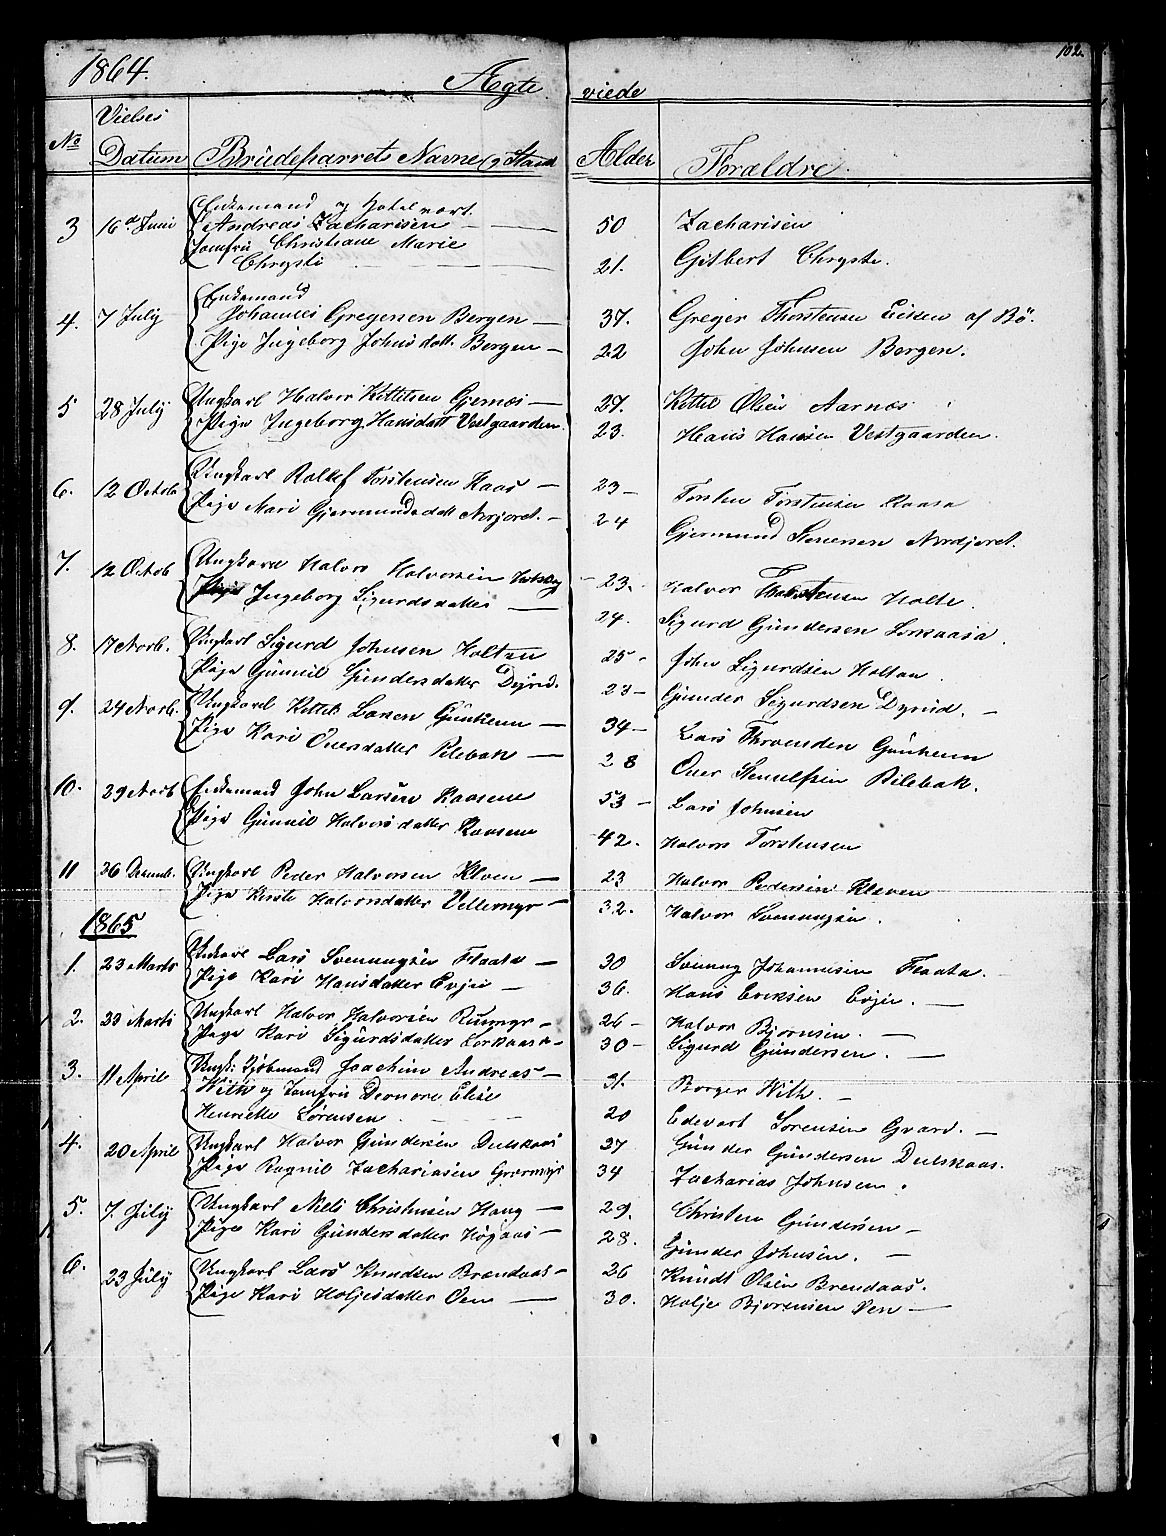 102.
1864.
Ægte viede
No Vielses Datum Brudeparrets Navne og Stand Alder Forældre.
3 16d Juni Enkemand og Hotelvert
Andreas Zacharisen 50 Zacharisen
Jomfru Christiane Marie
Chrysti 21. Gilbert Chryste.
4. 7 July Enkemand
Johannes Gregersen Bergen 37. Greger Thorstensen af Bø.
Pige Ingeborg Johnsdatt. Bergen 22 John Johnsen Bergen.
5 28 July Ungkarl Halvor Kittilsen Gjernæs 27. Kittel Olsen Aarnæs
Pige Ingeborg Hansdatt Vestgaarden 23. Hans Hansen Vestgaarden.
6. 12 Octob Ungkarl Rollef Torstensen Kaas 23 Torsten Torstensen Kaasa
Pige Mari Gjermundsdatt Nordjoret. 24 Gjermund Stenersen Nordjoret.
7. 12 Octob Ungkarl Halvor Halvorsen 23. Halvor Thorstensen Holte.
Pige Ingeborg Sigurdsdatter 24. Sigurd Gundersen Lonkaasa.
8. 17 Novb. Ungkarl Sigurd Johnsen Holtan 25 John Sigurdsen Holtan.
Pige Gunnil Gundersdatter Dyrud. 23 Gunder Sigurdsen Dyrud.
9. 24 Novb. Ungkarl Kittil Larsen Gunheim 34 Lars Throndsen Gunheim
Pige Kari Oversdatter Pilebak 28 Over Stenulfsen Pilebak.
10. 29 Novb Enkemand John Larsen Kaasene 53 Lars Johnsen
Pige Gunnil Halvorsdatter Kaasene 42. Halvor Torstensen
11 26 Decemb. Ungkarl Peder Halvorsen Kleven 23 Halvor Pedersen Kleven
Pige Kirste Halvorsdatter Vellemyr 32. Halvor Svenungsen.
1865
1. 23 Marts Unkarl Lars Svenungsen Flaata 30 Svenung Johannesen Flaata.
Pige Kari Hansdatter Evjen 36. Hans Eriksen Evjen.
2. 30 Marts Ungkarl Halvor Halvorsen Rumyr 26 Halvor Bjornsen.
Pige Kari Sigurdsdatter Lonkaasa 30 Sigurd Gundersen.
3. 11 April Ungk. Kjøbmand Joachim Andreas 31. Borger With.
With og Jomfru Elise
Henriette Sørensen 20 Edevart Sørensen Gvarv.
4. 20 April Ungkarl Halvor Gundersen Dulskaas 37 Gunder Gundersen Dulskaas.
Pige Ragnil Zachariasen Grormyr 34 Zacharias Johnsen.
5. 7. July Ungkarl Niels Christensen Haug 29. Christen Gundersen
Pige Kari Gundersdatter Høgaas 28. Gunder Johnsen.
6. 23 July Ungkarl Lars Knudsen Brendaas 26 Knudt Olsen Brendaas.
Pige Kari Holjesdatter Ven 30. Holje Bjornsen Ven